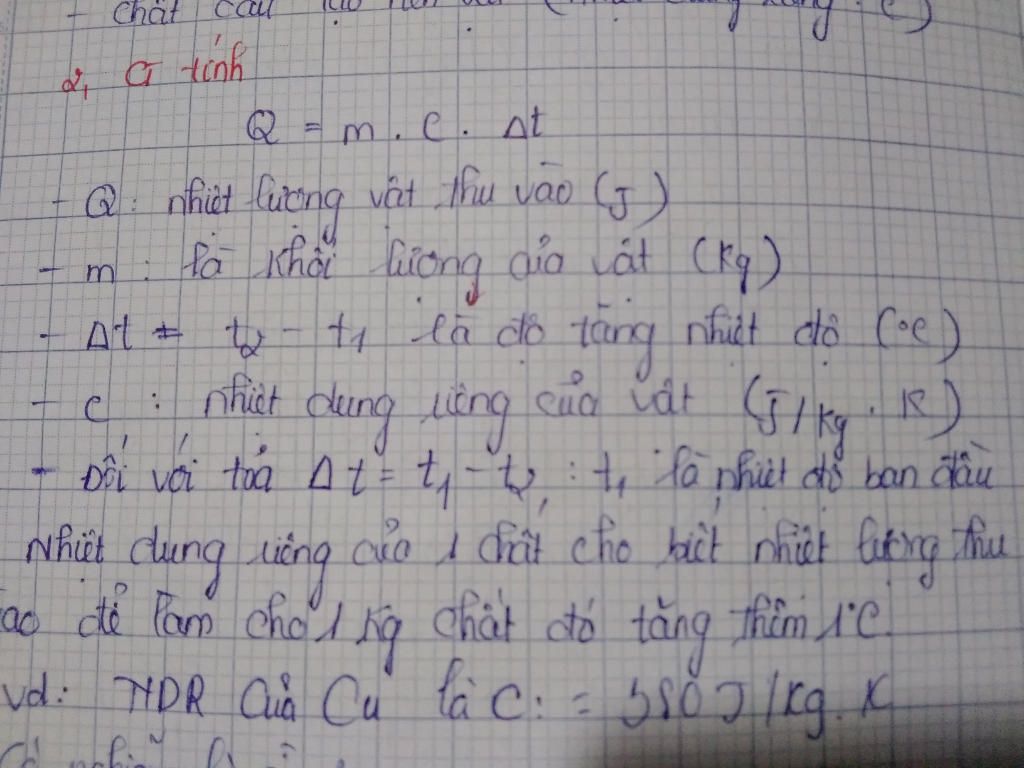 - chất cấu tạo nên vật
2, CT tính
Q = m . C . Δt
- Q : nhiệt lượng vật thu vào (J)
- m : là khối lượng của vật (Kg)
- Δt = t2 - t1 là độ tăng nhiệt độ (°C)
- c : nhiệt dung riêng của vật (J/kg . K)
- Đối với toả Δt = t1 - t2, : t1 là nhiệt độ ban đầu
Nhiệt dung riêng của 1 chất cho biết nhiệt lượng thu
ào để làm cho 1 kg chất đó tăng thêm 1°C
vd: NDR Của Cu là C : = 380 J/kg . K